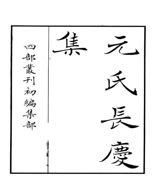 元氏長慶
集
四部叢刊初編集部